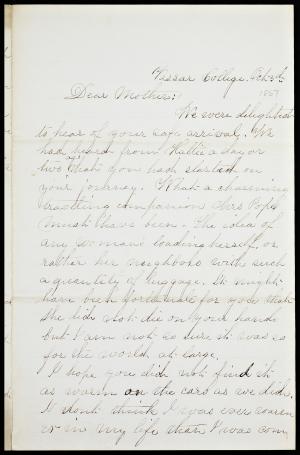 Vassar College. Oct. 5th
1867
Dear Mother:
We were delighted
to hear of your safe arrival. We
had heard from Hattie a day or
two that you had started on
your journey. What a charming
travelling companion Mrs Pope
must have been. The idea of
any woman's loading herself, or
rather her neighbors with such
a quantity of luggage. It might
have been fortunate for you that
she did not die on your hands
but I am not so sure it was so
for the world at large.
I hope you did not find it
as warm on the cars as we did.
I dont think I was ever warm
er in my life than I was com